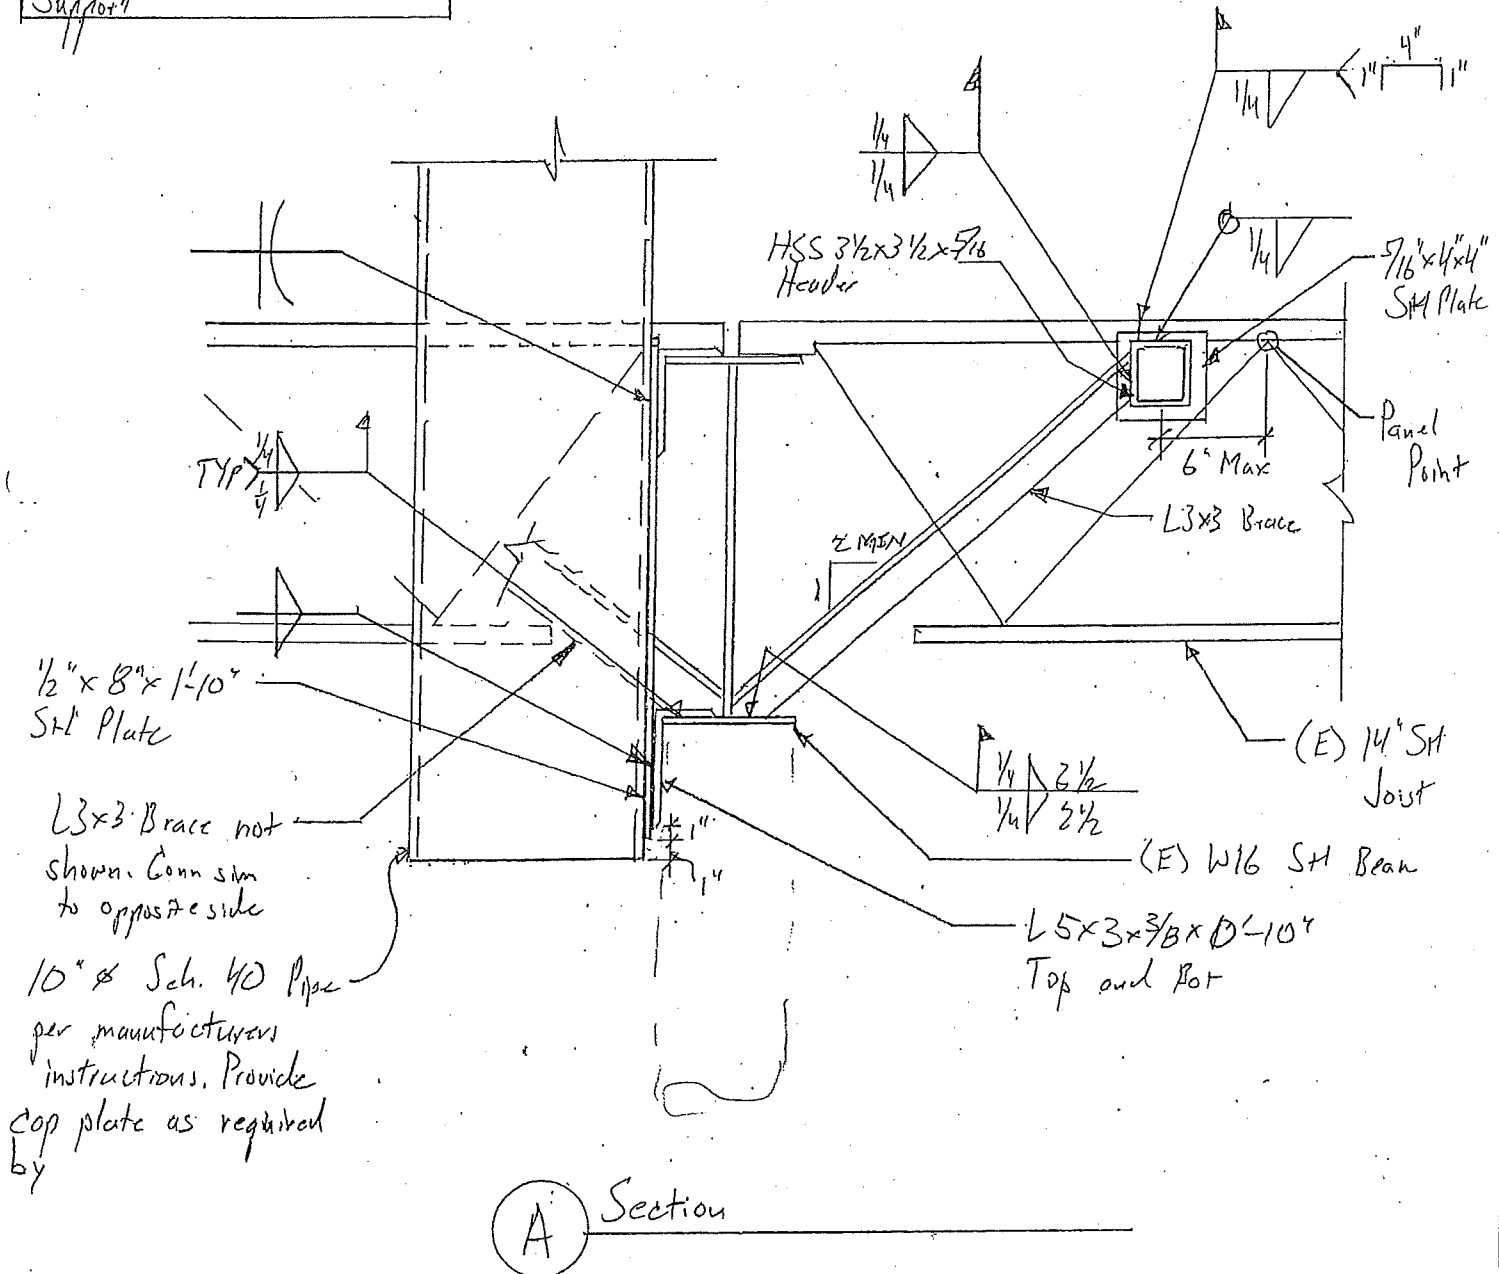 Support
4"
1/4
1"
1"
1/4
1/4
HSS 3 1/2 x 3 1/2 x 5/16
Header
1/4
5/16" x 4" x 4"
Stl Plate
TYP
1/4
1/4
6" Max
Panel
Point
L3x3 Brace
MIN
1
1/2" x 8" x 1'-10"
Stl Plate
(E) 14" Stl
Joist
1/4
1/4
2 1/2
L3x3 Brace not
shown. Conn sim
to opposite side
1"
1"
(E) W16 Stl Beam
L 5 x 3 x 3/8 x 0'-10"
Top and Bot
10" ø Sch. 40 Pipe
per manufacturers
instructions. Provide
cap plate as required
by
A
Section